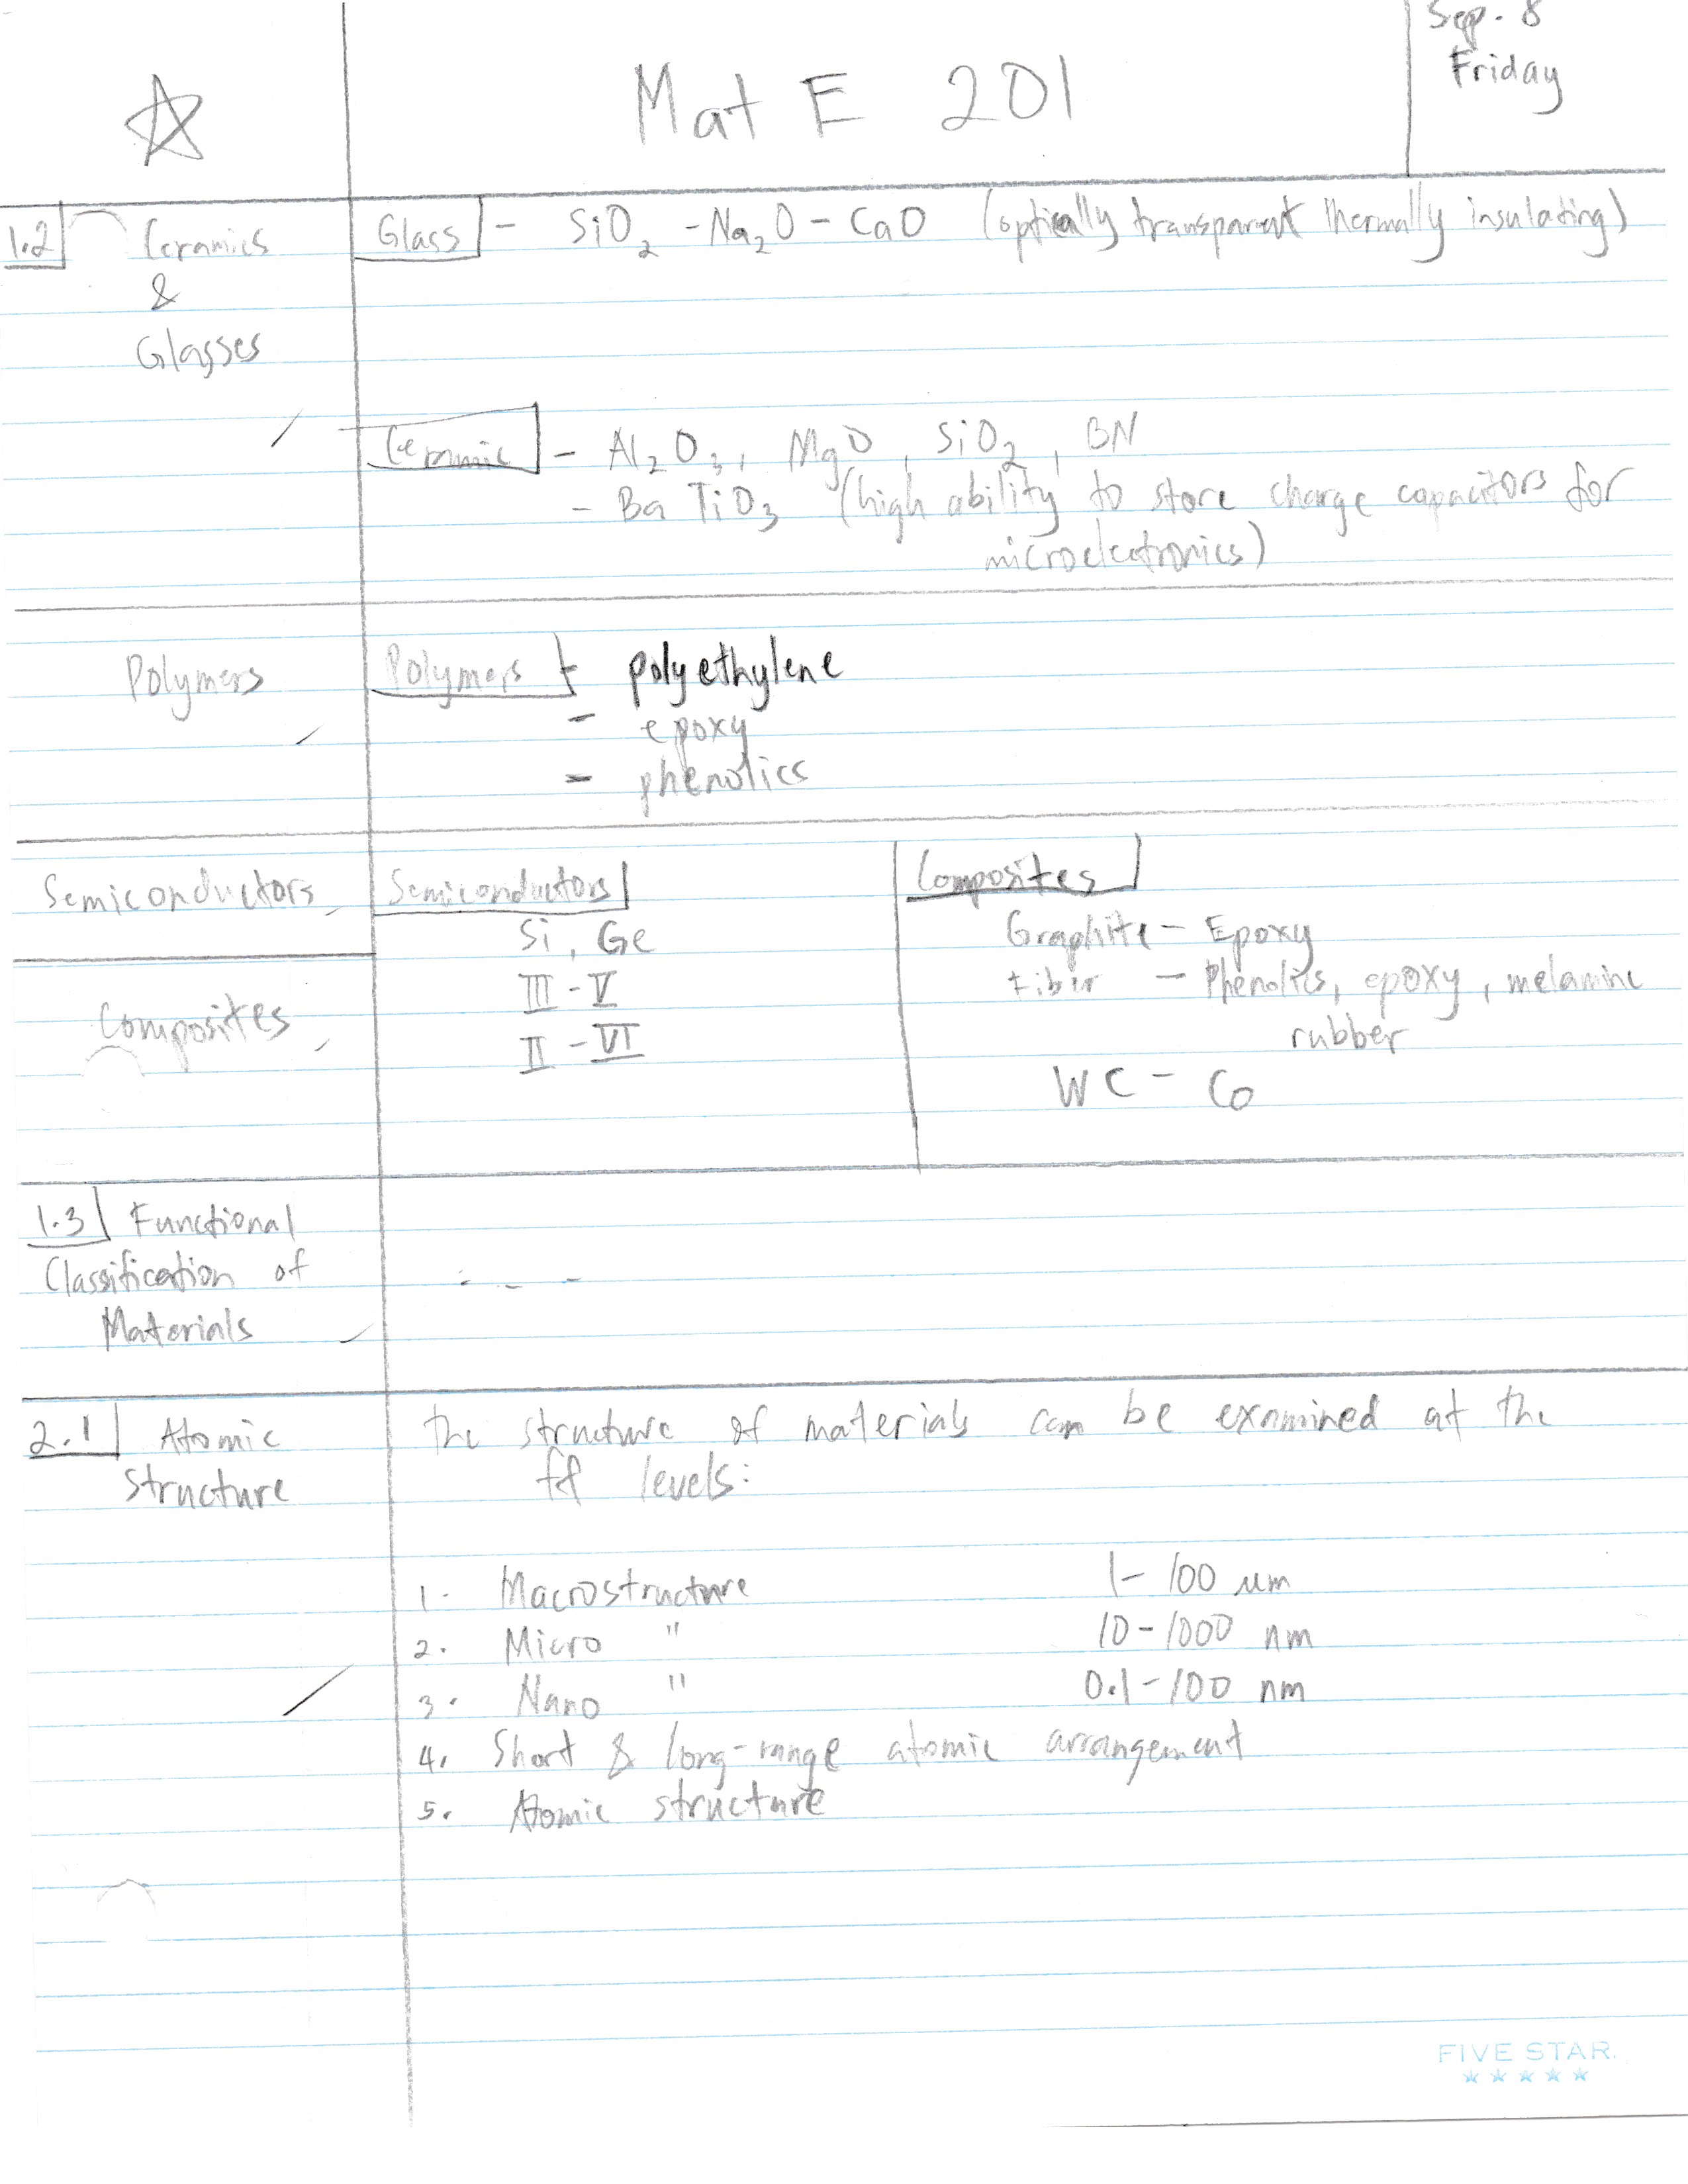 Sep. 8
Friday
Mat E 201
1.2 Ceramics
&
Glasses
Glass - SiO₂ - Na₂O - CaO (optically transparent thermally insulating)
Ceramic - Al₂O₃, MgO, SiO₂, BN
- BaTiO₃ (high ability to store charge capacitors for
microelectronics)
Polymers
Polymers - polyethylene
- epoxy
- phenolics
Semiconductors
Semiconductors
Si, Ge
III - V
II - VI
Composites
Composites
Graphite - Epoxy
Fiber - Phenolics, epoxy, melamine
rubber
WC - Co
1.3 Functional
Classification of
Materials
- - -
2.1 Atomic
Structure
The structure of materials can be examined at the
ff levels:
1. Macrostructure 1-100 μm
2. Micro " 10-1000 nm
3. Nano " 0.1-100 nm
4. Short & long-range atomic arrangement
5. Atomic structure
FIVE STAR.
★★★★★